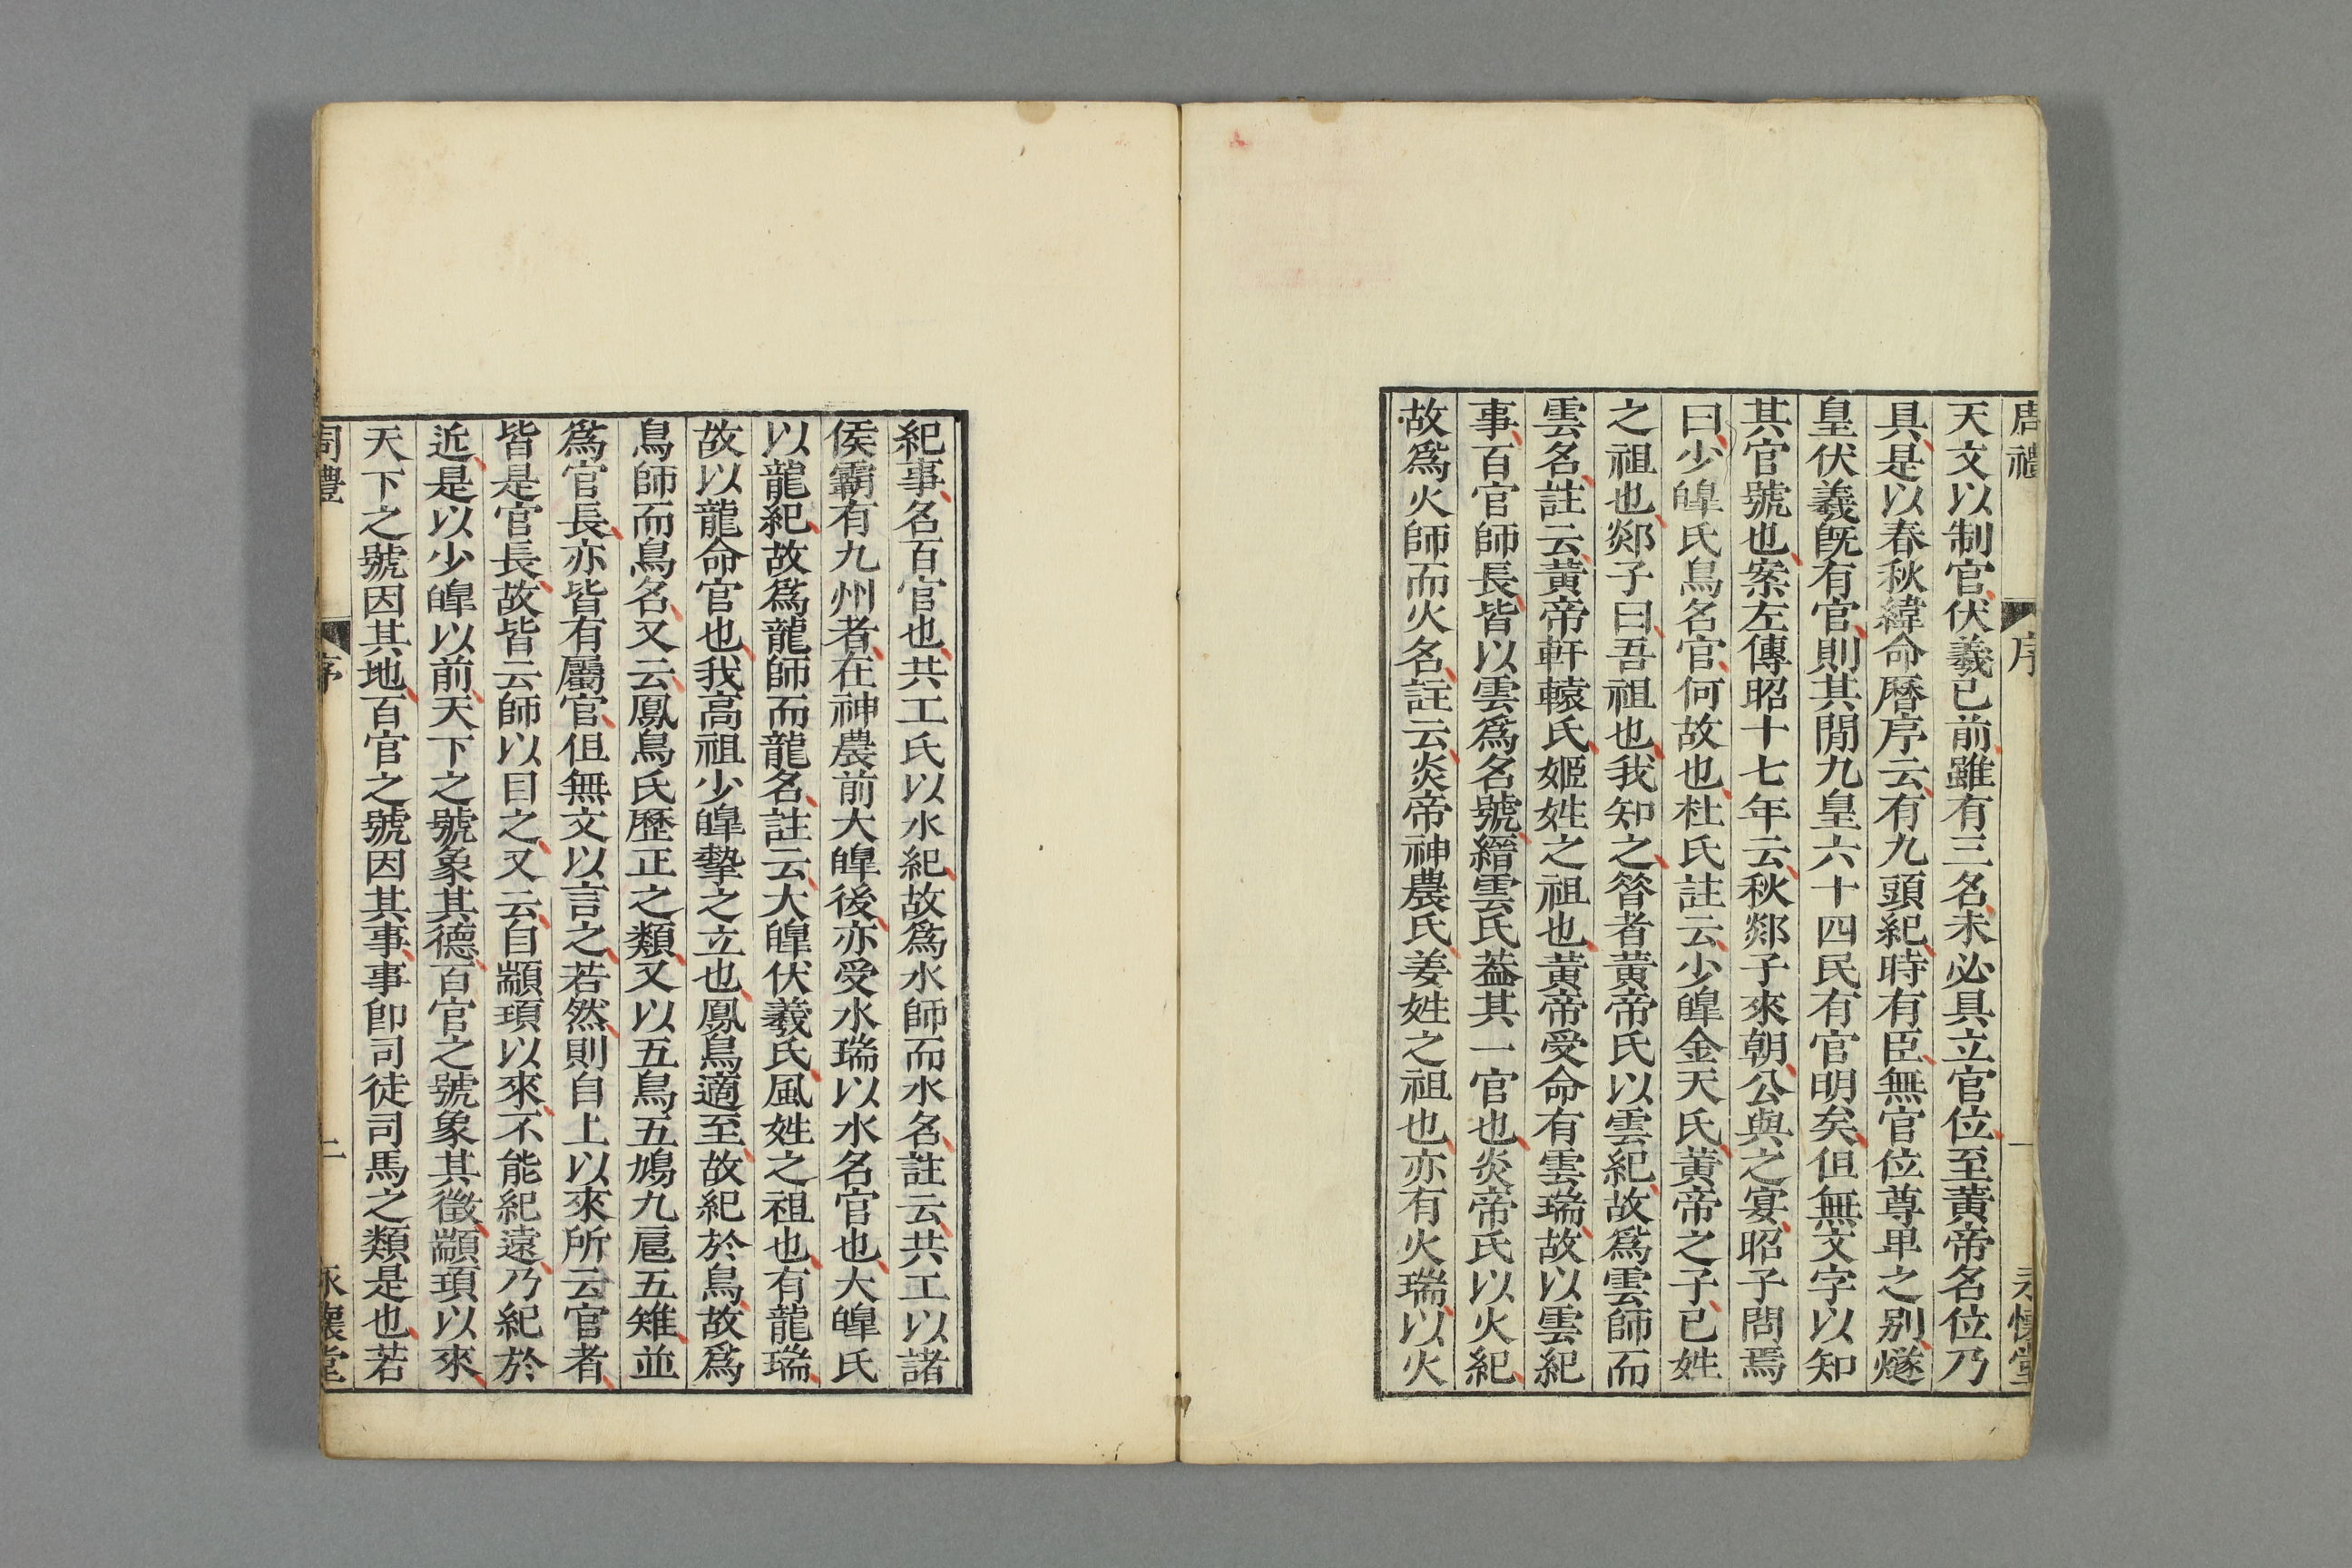 周禮 序 一 永懷堂
天文以制官伏羲已前雖有三名未必具立官位至黃帝名位乃
具是以春秋緯命曆序云有九頭紀時有臣無官位尊卑之別燧
皇伏羲旣有官則其閒九皇六十四民有官明矣但無文字以知
其官號也案左傳昭十七年云秋郯子來朝公與之宴昭子問焉
曰少皥氏鳥名官何故也杜氏註云少皥金天氏黃帝之子已姓
之祖也郯子曰吾祖也我知之昝者黃帝氏以雲紀故爲雲師而
雲名註云黃帝軒轅氏姬姓之祖也黃帝受命有雲瑞故以雲紀
事百官師長皆以雲爲名號縉雲氏葢其一官也炎帝氏以火紀
故爲火師而火名註云炎帝神農氏姜姓之祖也亦有火瑞以火
紀事名百官也共工氏以水紀故爲水師而水名註云共工以諸
侯霸有九州者在神農前大皥後亦受水瑞以水名官也大皥氏
以龍紀故爲龍師而龍名註云大皥伏羲氏風姓之祖也有龍瑞
故以龍命官也我高祖少皥摯之立也鳳鳥適至故紀於鳥故爲
鳥師而鳥名又云鳳鳥氏歷正之類又以五鳥五鳩九扈五雉並
爲官長亦皆有屬官但無文以言之若然則自上以來所云官者
皆是官長故皆云師以目之又云自顓頊以來不能紀遠乃紀於
近是以少皥以前天下之號象其德百官之號象其徵顓頊以來
天下之號因其地百官之號因其事事卽司徒司馬之類是也若
周禮 序 二 永懷堂